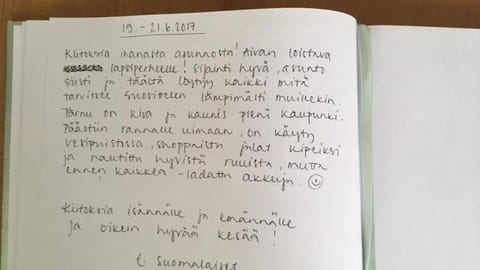 19. – 21.6.2017
Kiitoksia ihanasta asunnosta! Aivan loistava
lapsiperheelle! Sijainti hyvä, asunto
siisti ja täältä löytyy kaikki mitä
tarvitsee. Suosittelen lämpimästi muillekin.
Pärnu on kiva ja kaunis pieni kaupunki.
Päästiin rannalle uimaan, on käyty
vesipuistossa, shoppailtu jalat kipeiksi
ja nautittu hyvistä ruuista, mutta
ennen kaikkea -ladattu akkuja. ☺
Kiitoksia isännälle ja emännälle
ja oikein hyvää kesää!
t. Suomalaiset